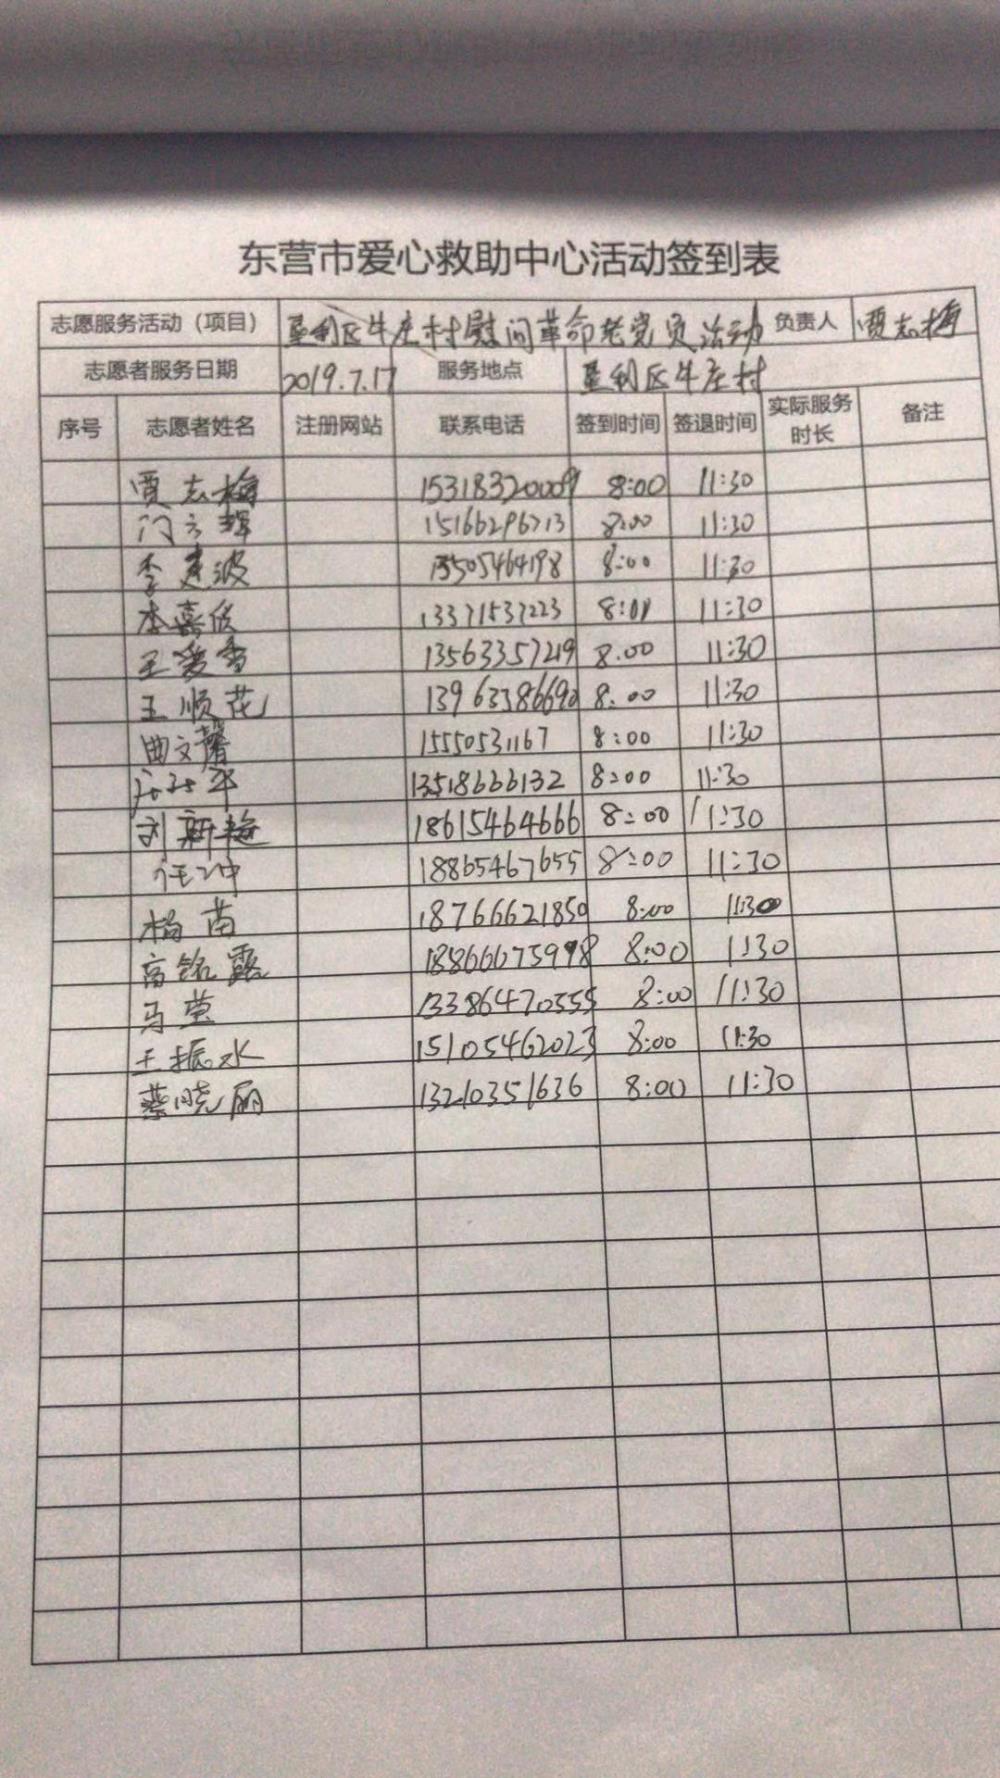 东营市爱心救助中心活动签到表
志愿服务活动（项目） 垦利区牛庄村慰问革命老党员活动 负责人 贾志梅
志愿者服务日期 2019.7.17 服务地点 垦利区牛庄村
序号 志愿者姓名 注册网站 联系电话 签到时间 签退时间 实际服务时长 备注
贾志梅 15318320009 8:00 11:30
15166296713 8:00 11:30
李建波 13505464198 8:00 11:30
13371537223 8:00 11:30
王爱香 13563357219 8:00 11:30
王顺花 13963386690 8:00 11:30
曲文馨 15550531167 8:00 11:30
13518666132 8:00 11:30
刘新艳 18615464666 8:00 11:30
任冲 18865467655 8:00 11:30
杨苗 18766621850 8:00 11:30
高铭露 18866675998 8:00 11:30
马莹 13386470555 8:00 11:30
王振水 15105462023 8:00 11:30
蔡晓丽 13210351636 8:00 11:30